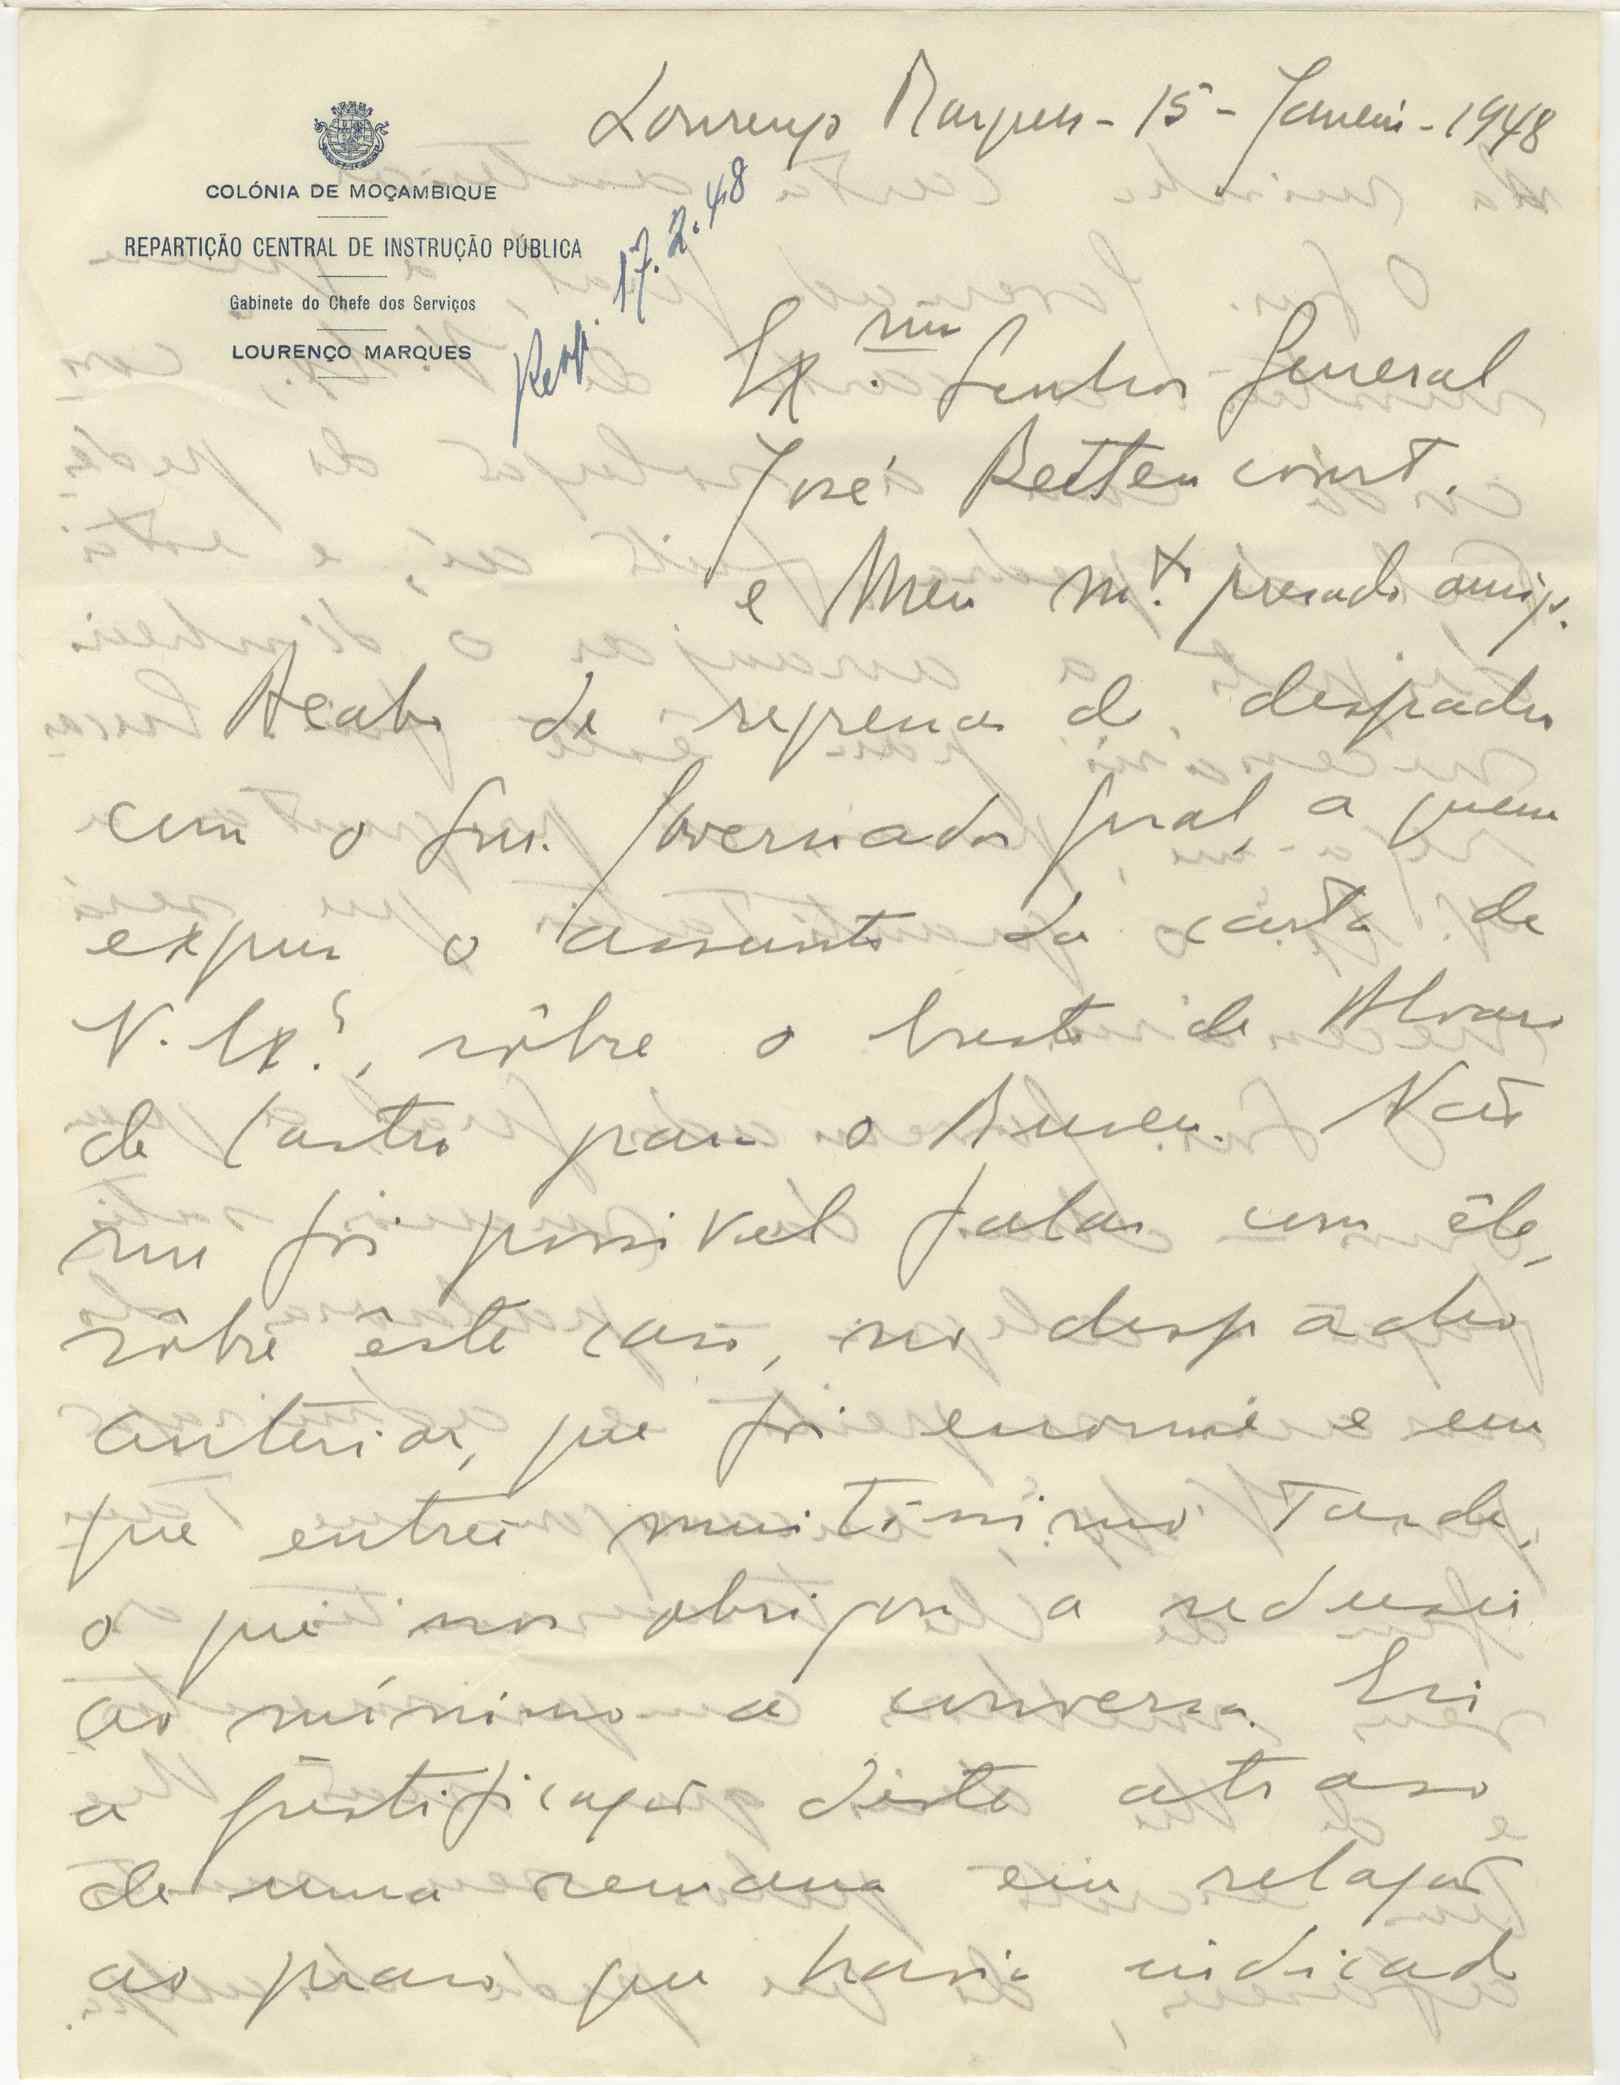 Lourenço Marques - 15 - Janeiro - 1948
COLÓNIA DE MOÇAMBIQUE
REPARTIÇÃO CENTRAL DE INSTRUÇÃO PÚBLICA
Gabinete do Chefe dos Serviços
LOURENÇO MARQUES
Resp. 17.2.48
Ex.mo Senhor General
José Bettencourt.
e Meu m.to presado amigo.
Acabo de regressar do despacho
com o Snr. Governador Geral, a quem
expus o assunto da carta de
V. Ex.ª, sôbre o busto de Alvaro
de Castro para o Museu. Não
me foi possivel falar com êle,
sôbre êste caso, no despacho
anterior, que foi enorme e em
que entrei muitíssimo tarde,
o que nos obrigou a reduzir
ao mínimo a conversa. Eis
a justificação dêste atraso
de uma semana em relação
ao prazo que havia indicado